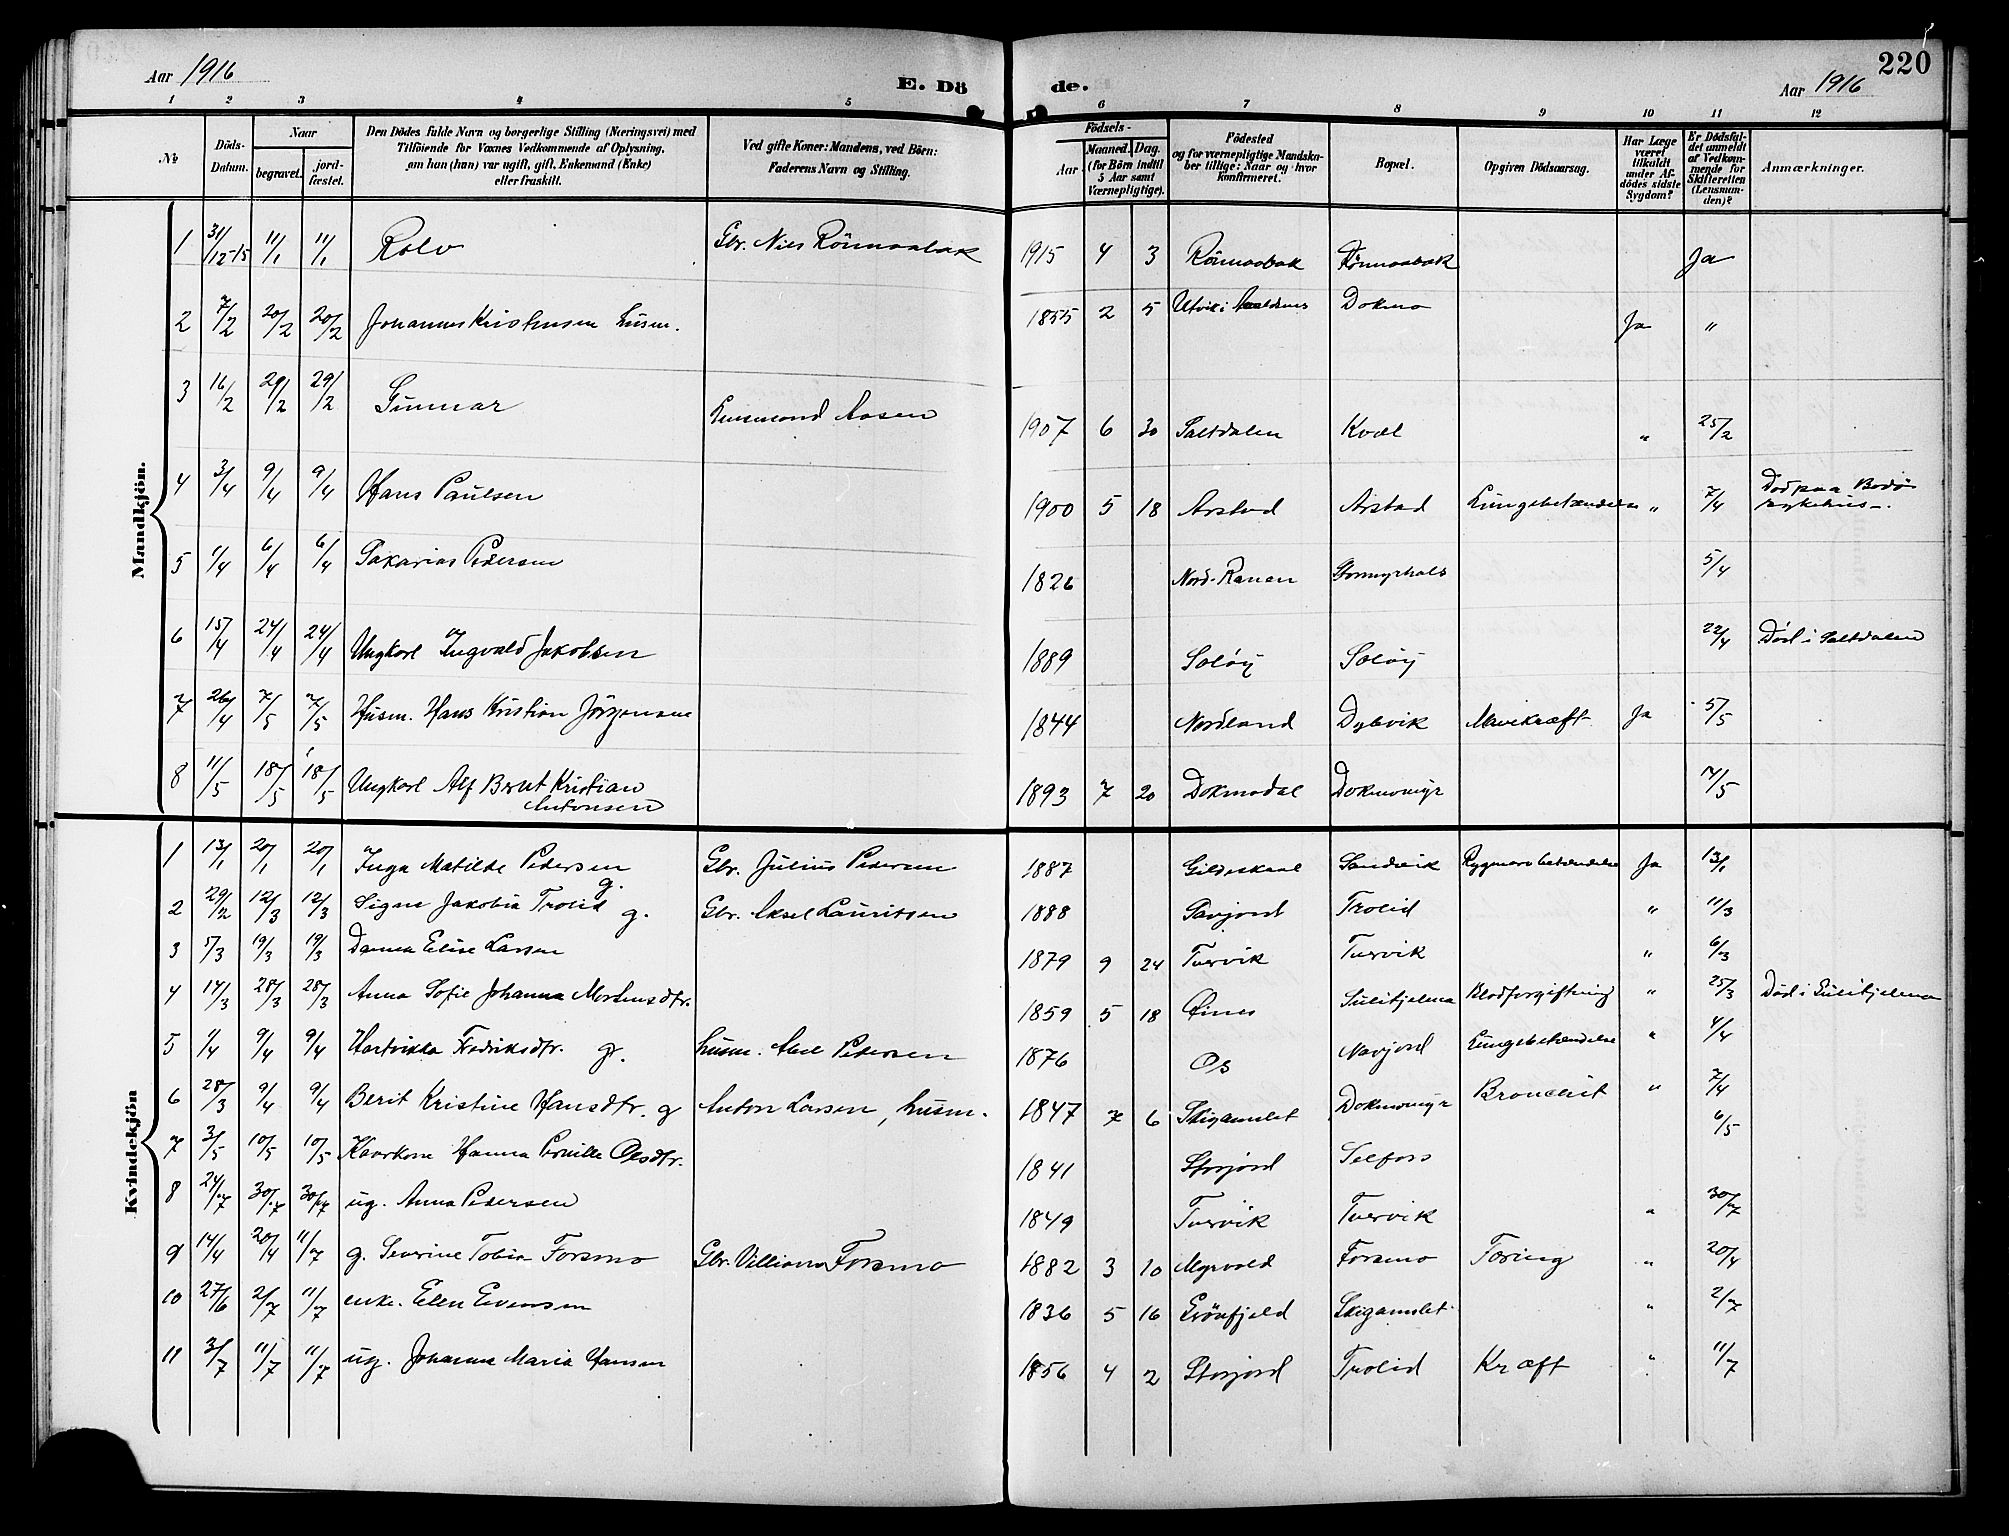 Aar 1916
E. Dö
de.
Aar 1916
220
1 2 3 4 5 6 7 8 9 10 11 12
No
Döds-Datum.
Naar
begravet.
jord-fæstet.
Den Dödes fulde Navn og borgerlige Stilling (Næringsvei) med
Tilföiende for Voxnes Vedkommende af Oplysning,
om han (hun) var ugift, gift, Enkemand (Enke)
eller fraskilt.
Ved gifte Koner: Mandens, ved Börn:
Faderens Navn og Stilling.
Födsels-
Aar.
Maaned. Dag.
(for Börn indtil
5 Aar samt
Værnepligtige).
Födested
og for værnepligtige Mandska-
ber tillige: Naar og hvor
konfirmeret.
Bopæl.
Opgiven Dödsaarsag.
Har Læge
været
tilkaldt
under Af-
dödes sidste
Sygdom?
Er Dödsfal-
det anmeldt
af Vedkom-
mende for
Skifteretten
(Lensman-
den)?
Anmærkninger.
Mandkjön.
1 31/12-15 11/1 11/1 Rolv Gbr. Nils Rönnaabak 1915 4 3 Rönnaabak Rönnaabak Ja
2 7/2 20/2 20/2 Johannes Kristensen husm. 1855 2 5 Utvik i Dokmo Ja "
3 16/2 29/2 29/2 Gunnar Lensmand Aasen 1907 6 30 Saltdalen Kvæl " 25/2
4 3/4 9/4 9/4 Hans Paulsen 1900 5 18 Arstad Arstad Lungebetændelse " 7/4 Död paa Bodö sykehus.
5 1/4 6/4 6/4 Sakarias Pedersen 1826 Nord-Ranen Stormyrhals 5/4
6 15/4 24/4 24/4 Ungkarl Ingvald Jakobsen 1889 Soløy Soløy 22/4 Død i Saltdalen
7 26/4 7/5 7/5 Husm. Hans Kristian Jörgensen 1844 Nordland Dybvik Mavekræft Ja 5/5
8 11/5 18/5 18/5 Ungkarl Alf Bernt Kristian Antonsen 1893 7 20 Dokmodal Dokmomyr 14/5
Kvindekjön
1 13/1 20/1 20/1 Inga Matilde Pedersen g. Gbr. Julius Pedersen 1887 Gildeskaal Sandvik Rygmarvsbetændelse Ja 13/1
2 29/2 12/3 12/3 Signe Jakobia Trolid g. Gbr. Aksel Lauritsen 1888 Savjord Trolid " 11/3
3 5/3 19/3 19/3 Danna Elise Larsen 1879 9 24 Tvervik Tvervik " 6/3
4 14/3 28/3 28/3 Anna Sofie Johanna Mortensdtr. 1859 5 18 Øines Sulitjelma Blodforgiftning " 25/3 Død i Sulitjelma
5 1/4 9/4 9/4 Hartvikka Fredriksdtr. g. husm. Pedersen 1876 Os Navjord Lungebetændelse " 4/4
6 28/3 9/4 9/4 Berit Kristine Hansdtr. g Anton Larsen, husm. 1847 7 6 Skigamslet Dokmomyr Bronchit " 7/4
7 3/5 10/5 10/5 Kaarkone Hanna Pernille Olsdtr. 1841 Storjord Selfors 6/5
8 24/7 30/7 30/7 ug. Anna Pedersen 1849 Tvervik Tvervik " 30/7
9 14/4 20/4 11/7 g. Severine Tobia Forsmo Gbr. Villiam Forsmo 1882 3 10 Myrvold Forsmo Tæring " 20/4
10 27/6 2/7 11/7 enke. Elen Evensen 1836 5 16 Grönfjeld Skigamslet " 2/7
11 3/7 11/7 11/7 ug. Johanna Maria Hansen 1856 4 2 Storjord Trolid Kræft " 11/7